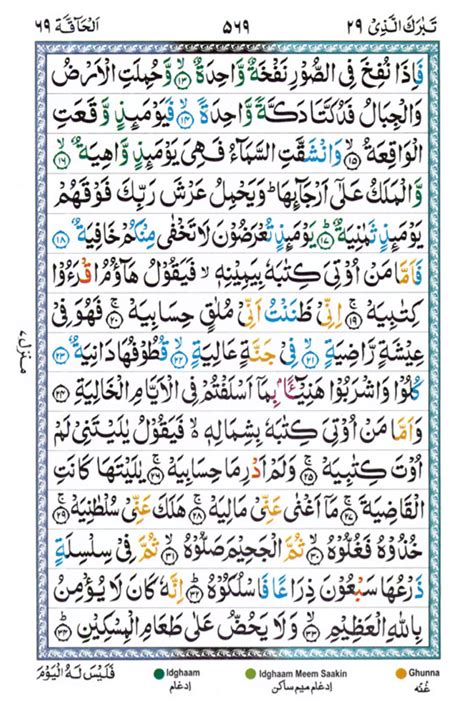 تَبٰرَكَ الَّذِىْ ٢٩ ٥٦٩ اَلْحَآقَّة ٦٩
فَاِذَا نُفِخَ فِى الصُّوْرِ نَفْخَةٌ وَّاحِدَةٌ ﴿١٣﴾ وَّحُمِلَتِ الْاَرْضُ
وَالْجِبَالُ فَدُكَّتَا دَكَّةً وَّاحِدَةً ﴿١٤﴾ فَيَوْمَئِذٍ وَّقَعَتِ
الْوَاقِعَةُ ﴿١٥﴾ وَانْشَقَّتِ السَّمَآءُ فَهِىَ يَوْمَئِذٍ وَّاهِيَةٌ ﴿١٦﴾
وَّالْمَلَكُ عَلٰٓى اَرْجَآئِهَا ؕ وَيَحْمِلُ عَرْشَ رَبِّكَ فَوْقَهُمْ
يَوْمَئِذٍ ثَمٰنِيَةٌ ﴿١٧﴾ يَوْمَئِذٍ تُعْرَضُوْنَ لَا تَخْفٰى مِنْكُمْ خَافِيَةٌ ﴿١٨﴾
فَاَمَّا مَنْ اُوْتِىَ كِتٰبَهٗ بِيَمِيْنِهٖ ۙ فَيَقُوْلُ هَآؤُمُ اقْرَءُوْا
كِتٰبِيَهْ ﴿١٩﴾ اِنِّىْ ظَنَنْتُ اَنِّىْ مُلٰقٍ حِسَابِيَهْ ﴿٢٠﴾ فَهُوَ فِىْ
عِيْشَةٍ رَّاضِيَةٍ ﴿٢١﴾ فِىْ جَنَّةٍ عَالِيَةٍ ﴿٢٢﴾ قُطُوْفُهَا دَانِيَةٌ ﴿٢٣﴾
كُلُوْا وَاشْرَبُوْا هَنِيْٓئًا ۢ بِمَاۤ اَسْلَفْتُمْ فِى الْاَيَّامِ الْخَالِيَةِ ﴿٢٤﴾
وَاَمَّا مَنْ اُوْتِىَ كِتٰبَهٗ بِشِمَالِهٖ ۙ فَيَقُوْلُ يٰلَيْتَنِىْ لَمْ
اُوْتَ كِتٰبِيَهْ ﴿٢٥﴾ وَلَمْ اَدْرِ مَا حِسَابِيَهْ ﴿٢٦﴾ يٰلَيْتَهَا كَانَتِ
الْقَاضِيَةَ ﴿٢٧﴾ مَاۤ اَغْنٰى عَنِّىْ مَالِيَهْ ﴿٢٨﴾ هَلَكَ عَنِّىْ سُلْطٰنِيَهْ ﴿٢٩﴾
خُذُوْهُ فَغُلُّوْهُ ﴿٣٠﴾ ثُمَّ الْجَحِيْمَ صَلُّوْهُ ﴿٣١﴾ ثُمَّ فِىْ سِلْسِلَةٍ
ذَرْعُهَا سَبْعُوْنَ ذِرَاعًا فَاسْلُكُوْهُ ﴿٣٢﴾ اِنَّهٗ كَانَ لَا يُؤْمِنُ
بِاللّٰهِ الْعَظِيْمِ ﴿٣٣﴾ وَلَا يَحُضُّ عَلٰى طَعَامِ الْمِسْكِيْنِ ﴿٣٤﴾
منزل ٧
فَلَيْسَ لَهُ الْيَوْمَ
Idghaam Idghaam Meem Saakin Ghunna
اِدغام اِدغام میم ساکن غُنّه